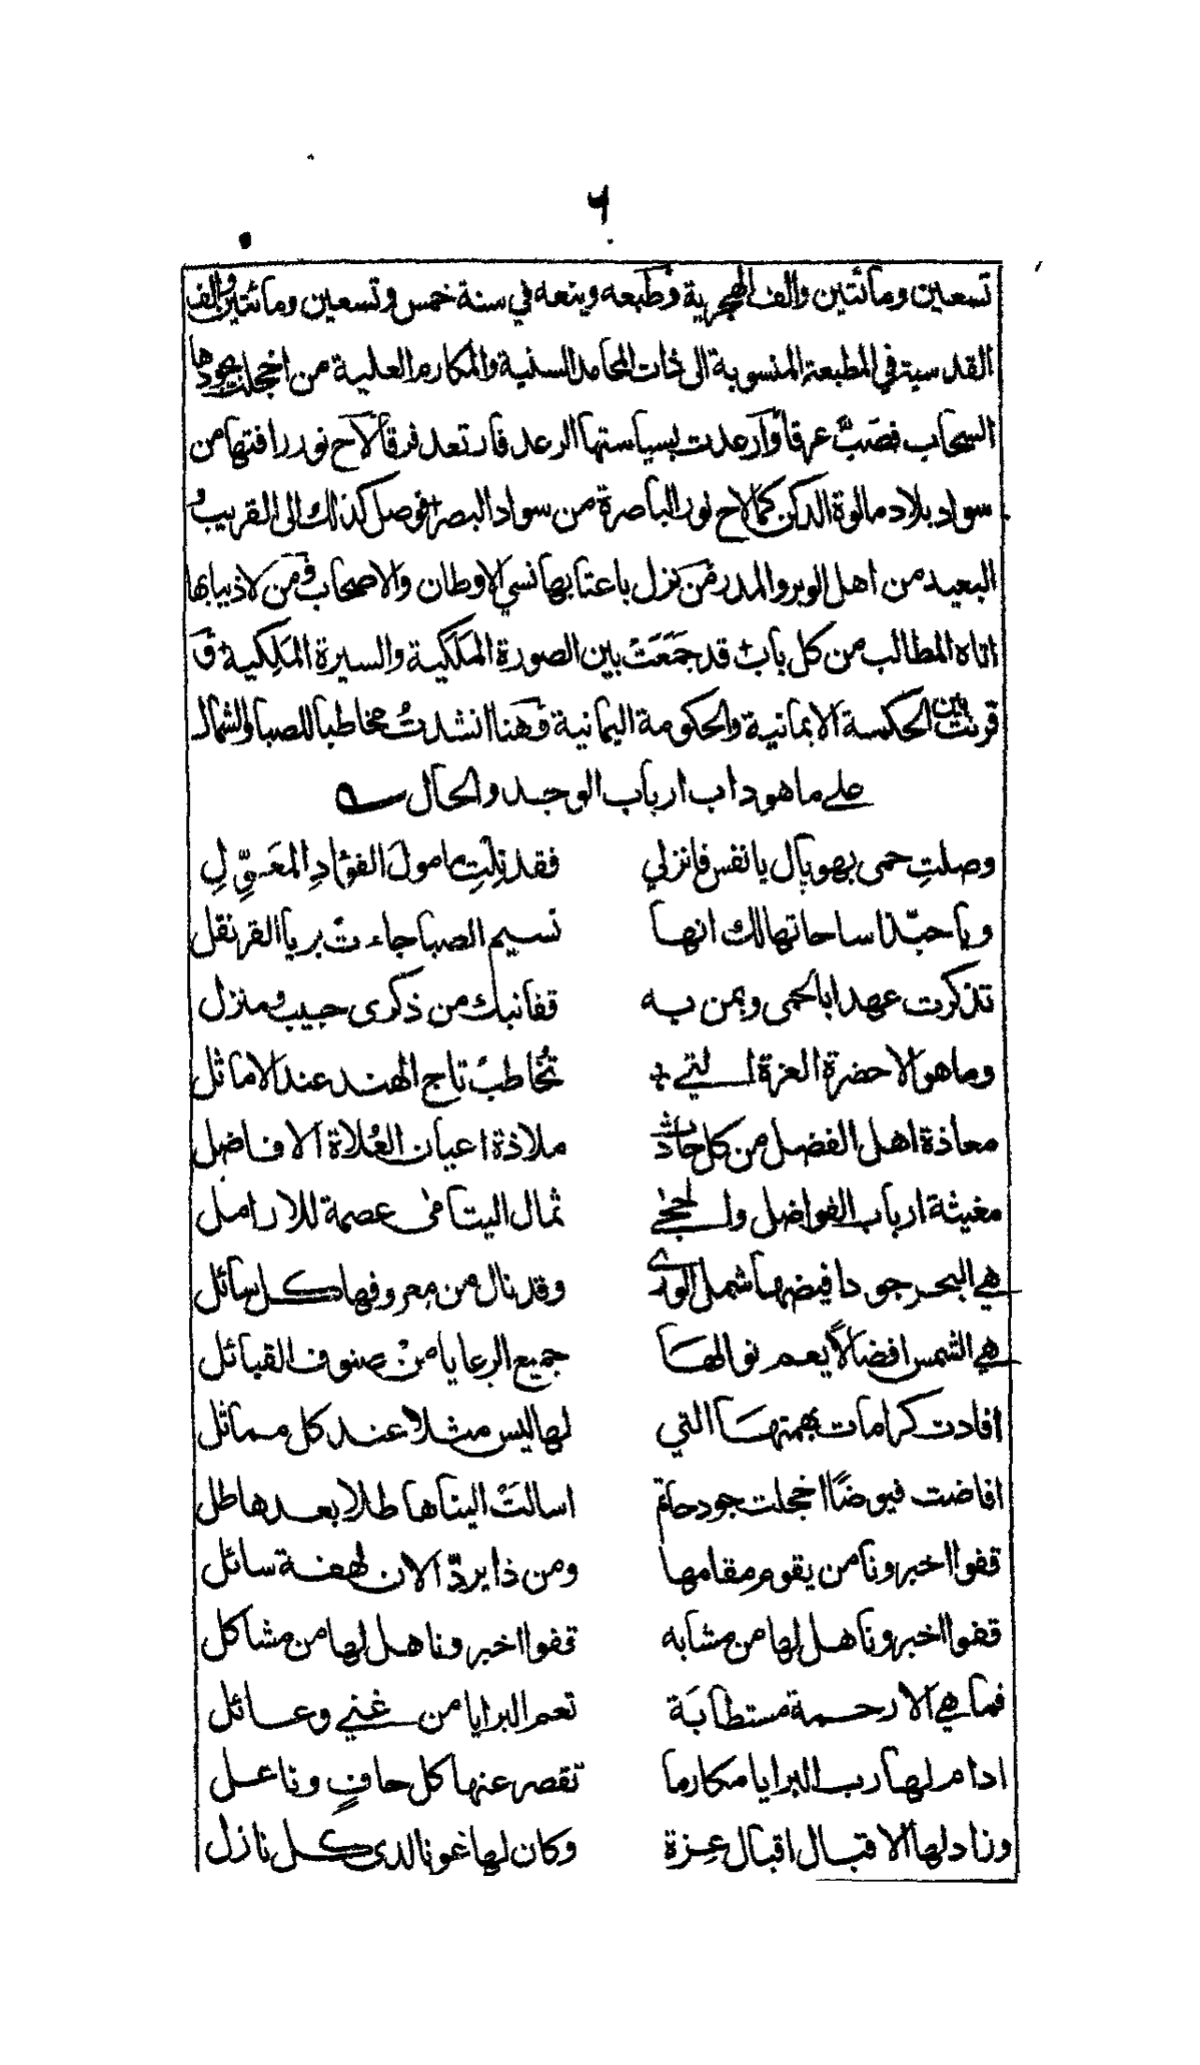 ٦
تسعين ومائتين والف الهجرية وطبعه وينعه في سنة خمس وتسعين ومائتين والف
القدسية في المطبعة المنسوبة الى ذات المحامد السنية والمكارم العلية من اخجلت بجودها
السحاب فصَبَّ عرقا وارعدت بسياستها الرعد فارتعد فرقا لاح نور رافتها من
سواد بلاد مالوة الدكن كما لاح نور الباصرة من سواد البصر فوصل كذلك الى القريب و
البعيد من اهل الوبر والمدر فمن نزل باعتابها نسي الاوطان والاصحاب ومن لاذ ببابها
اتاه المطالب من كل باب قد جمَعَتْ بين الصورة المَلَكية والسيرة المَلِكية و
قرنت بين الحكمة الايمانية والحكومة اليمانية وهنا انشدتُ مخاطبا للصبا والشمال
على ما هو داب ارباب الوجد والحال
وصلتِ حمى بهوپال يا نفس فانزلي فقد نِلتِ مامولَ الفؤادِ المعَوِّلِ
ويا حبّذا ساحاتها لك انها نسيم الصبا جاءت بريا القرنفل
تذكرت عهدا بالحمى وبمن به قفا نبك من ذكرى حبيب ومنزل
وما هو الا حضرة العزة التي تُخاطبُ تاج الهند عند الاماثل
معاذة اهل الفضل من كل حادث ملاذة اعيان العُلاة الافاضل
مغيثة ارباب الفواضل والحجى ثمال اليتامى عصمة للارامل
هي البحر جودا فيضها شمل الورى وقد نال من معروفها كل سائل
هي الشمس افضالاً يعم نوالها جميع الرعايا من صنوف القبائل
افادت كرامات بهمتها التي لها ليس مثلا عند كل مماثل
افاضت فيوضًا اخجلت جود حاتم اسالتْ الينا هاطلا بعد هاطل
قفوا اخبرونا من يقوم مقامها ومن ذا يردّ الان لهفة سائل
قفوا اخبرونا هل لها من مشابه قفوا اخبرونا هل لها من مشاكل
فما هي الا رحمة مستطابَة تعم البرايا من غني وعائل
ادام لها رب البرايا مكارما تقصر عنها كل حافٍ وناعل
وزاد لها الاقبال اقبال عزة وكان لها غونا لدى كل نازل